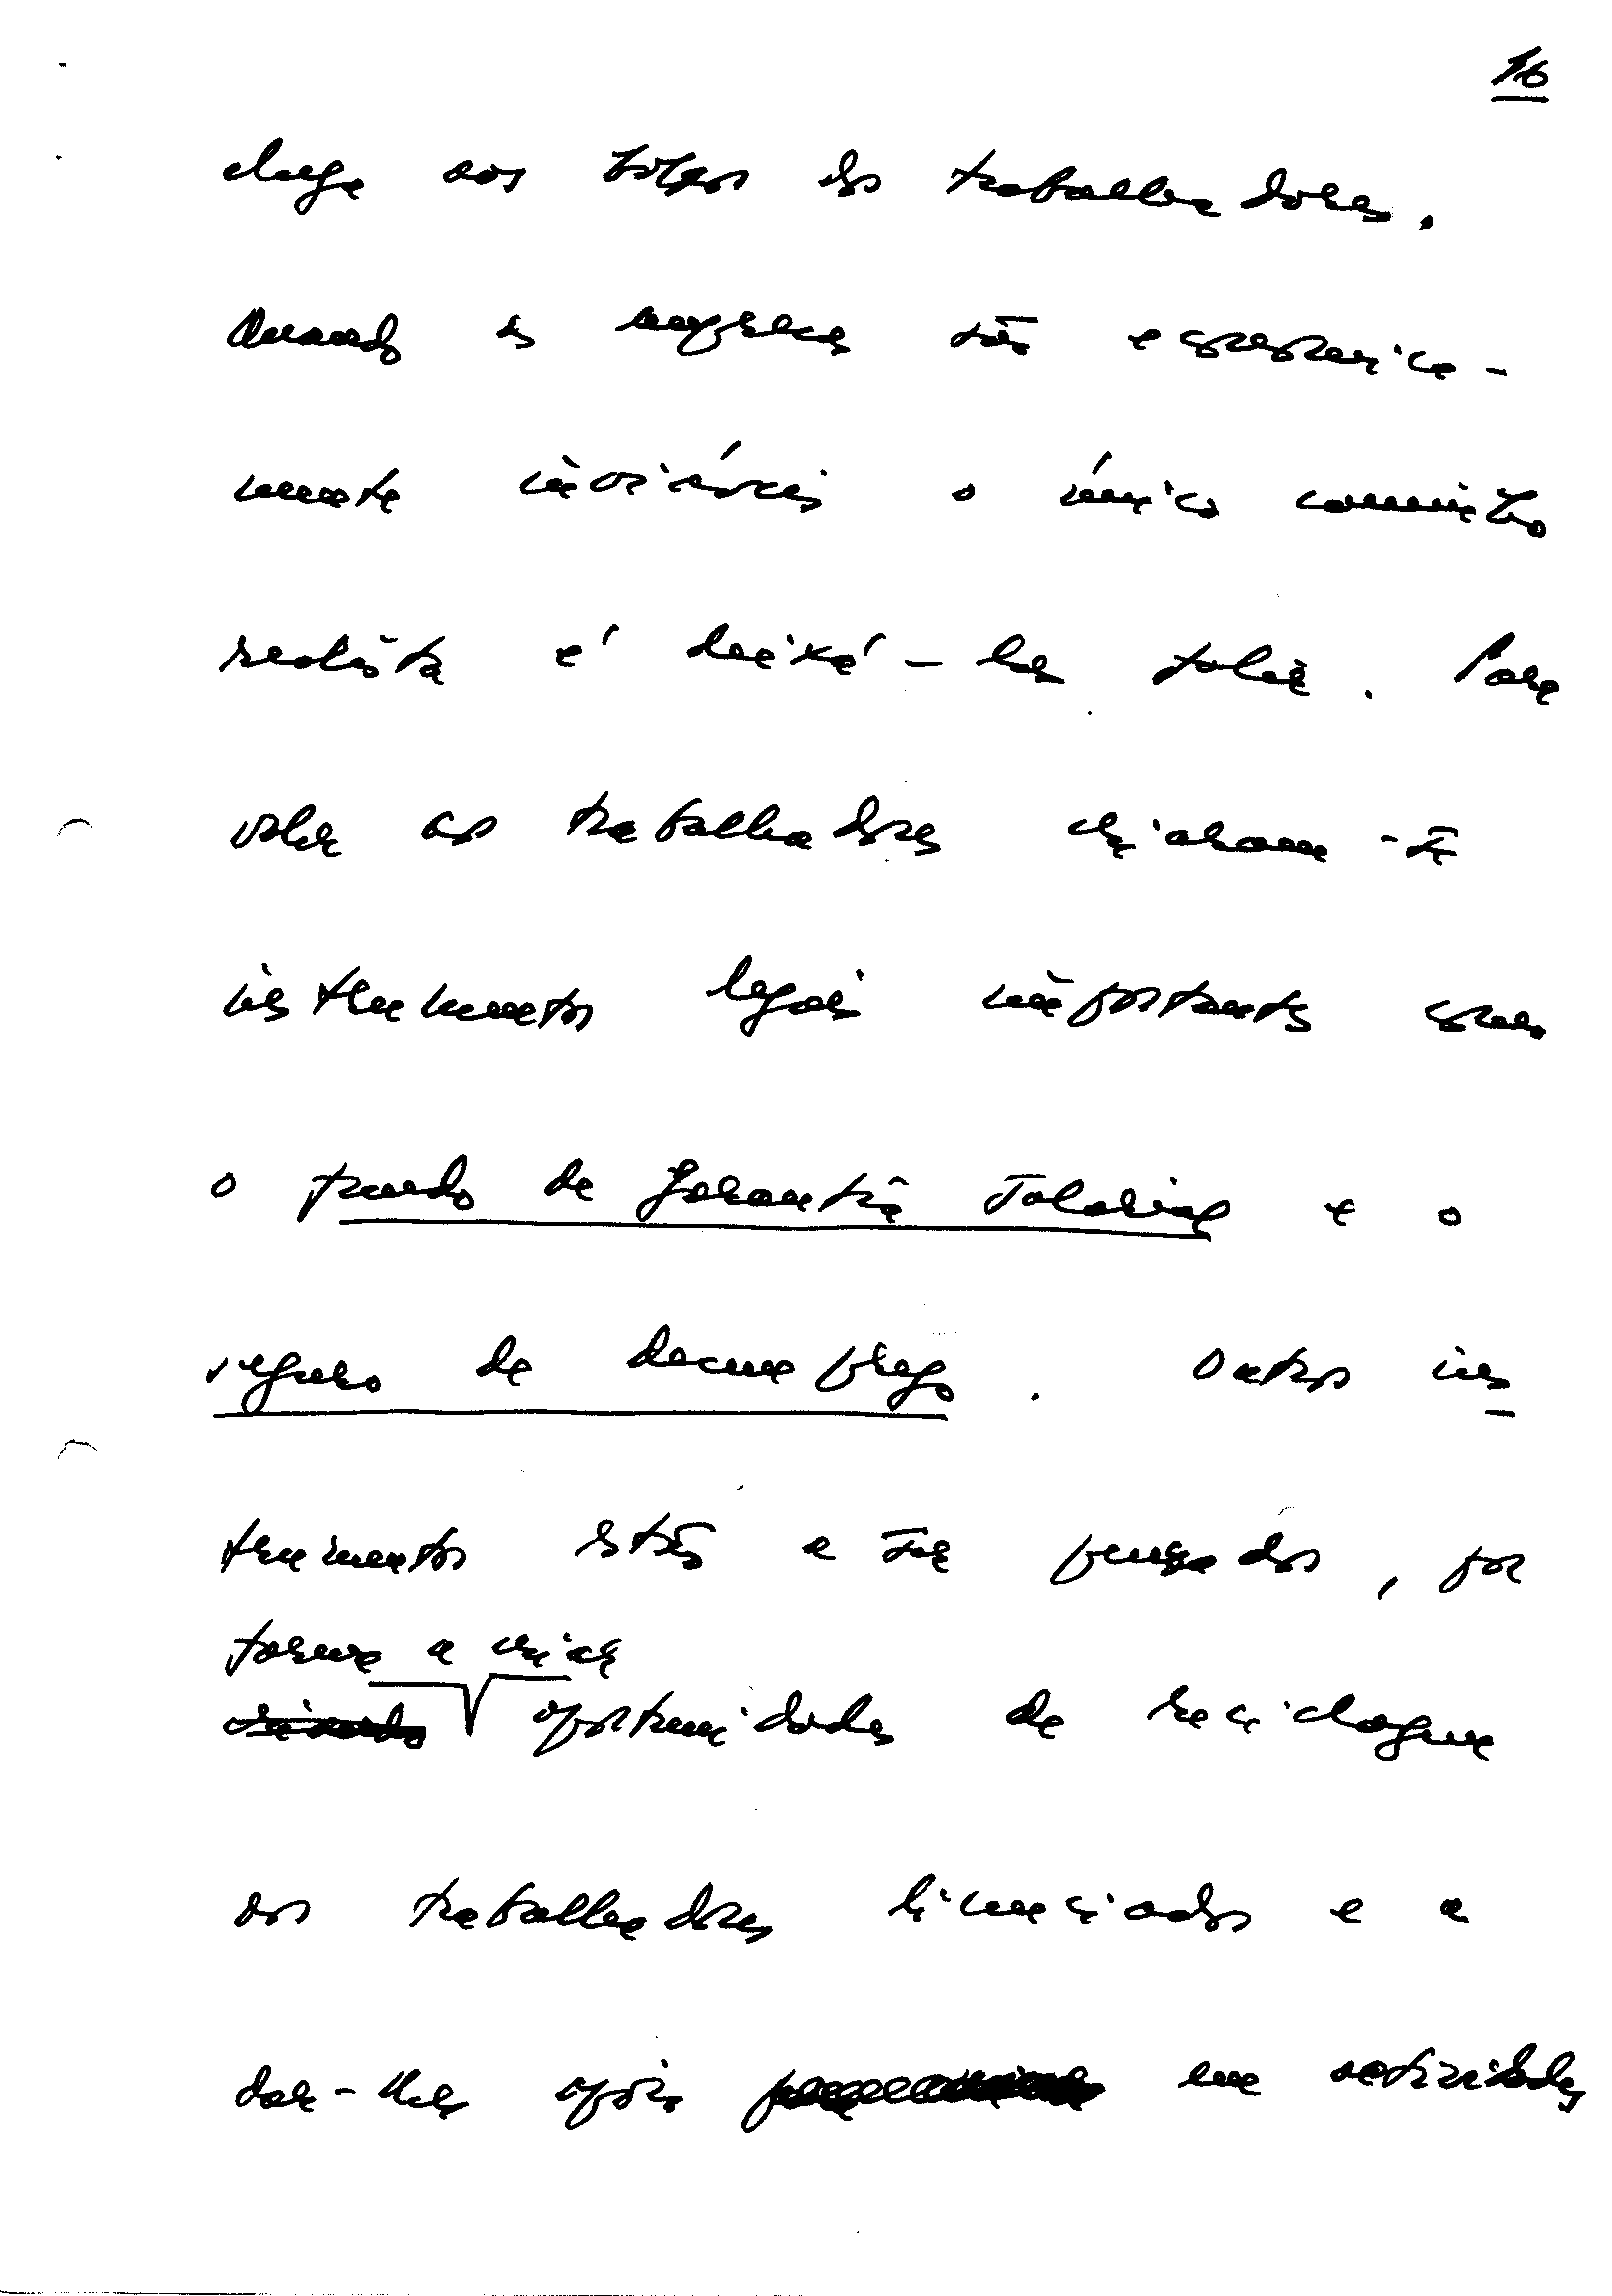 16
chega aos bolsos dos trabalhadores.
Quando as empresas são economica-
mente inviáveis o único caminho
realista é deixá-las falir. Para
valer aos trabalhadores criaram-se
instrumentos legais importantes como
o fundo de garantia salarial e o
seguro de desemprego. Outros ins
trumentos estão a ser pensados, por
forma a criar
oportunidades de reciclagem
aos trabalhadores licenciados e a
dar-lhes apoio em actividades